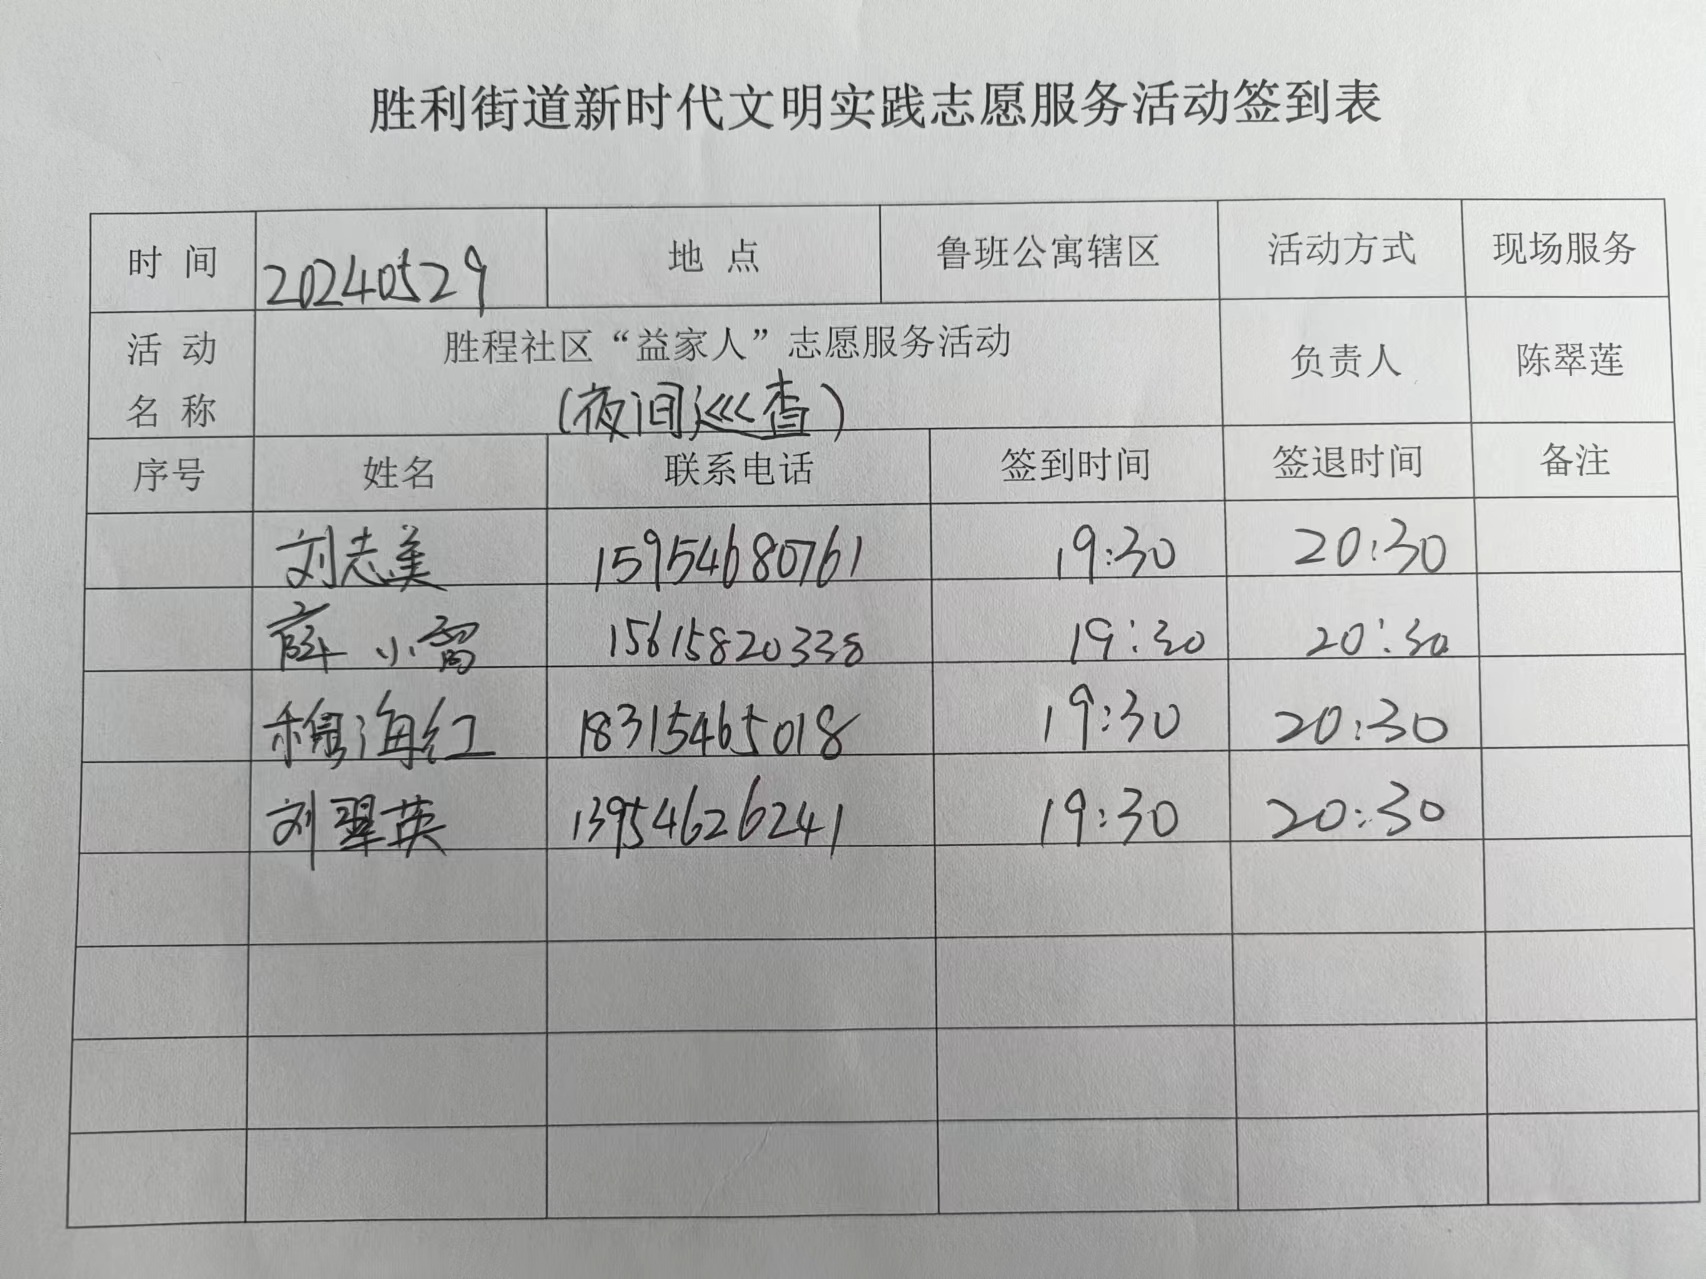 胜利街道新时代文明实践志愿服务活动签到表
时 间 20240529 地 点 鲁班公寓辖区 活动方式 现场服务
活 动 名 称 胜程社区“益家人”志愿服务活动 负责人 陈翠莲
(夜间巡查)
序号 姓名 联系电话 签到时间 签退时间 备注
刘志美 15954680761 19:30 20:30
薛小雪 15615820338 19:30 20:30
穆海红 18315465018 19:30 20:30
刘翠英 13954626241 19:30 20:30